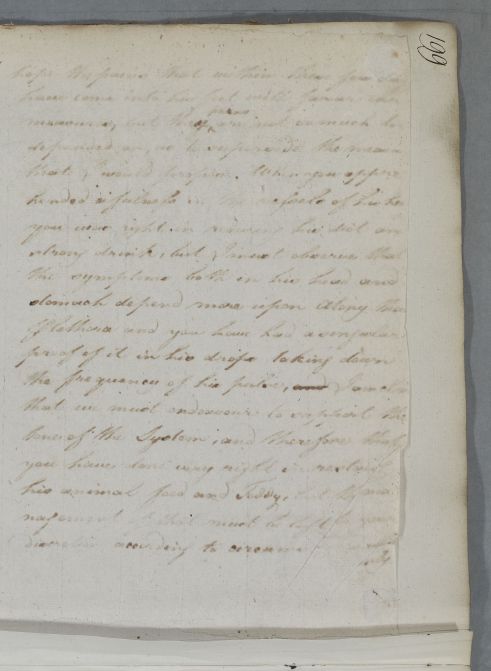 199
hope the pains that within these few da
have come into his feet will favour the
measure, but they are not so much to
pains
depended on, as to supersede the means
that I would propose. When you appre
hended a fulness in the vessels of his head
you was right in reducing his diet and
strong drink, but I must observe that
the symptoms both in his head and
stomach depend more upon Atony than
Plethora and you have had a singular
proof of it in his drops taking down
the frequency of his pulse, and I am clear
that we must endeavour to support the
tone of the System, and therefore that
you have done very right in restoring
his animal food and Toddy, but the ma
nagement of that must be left to your
discretion according to circum